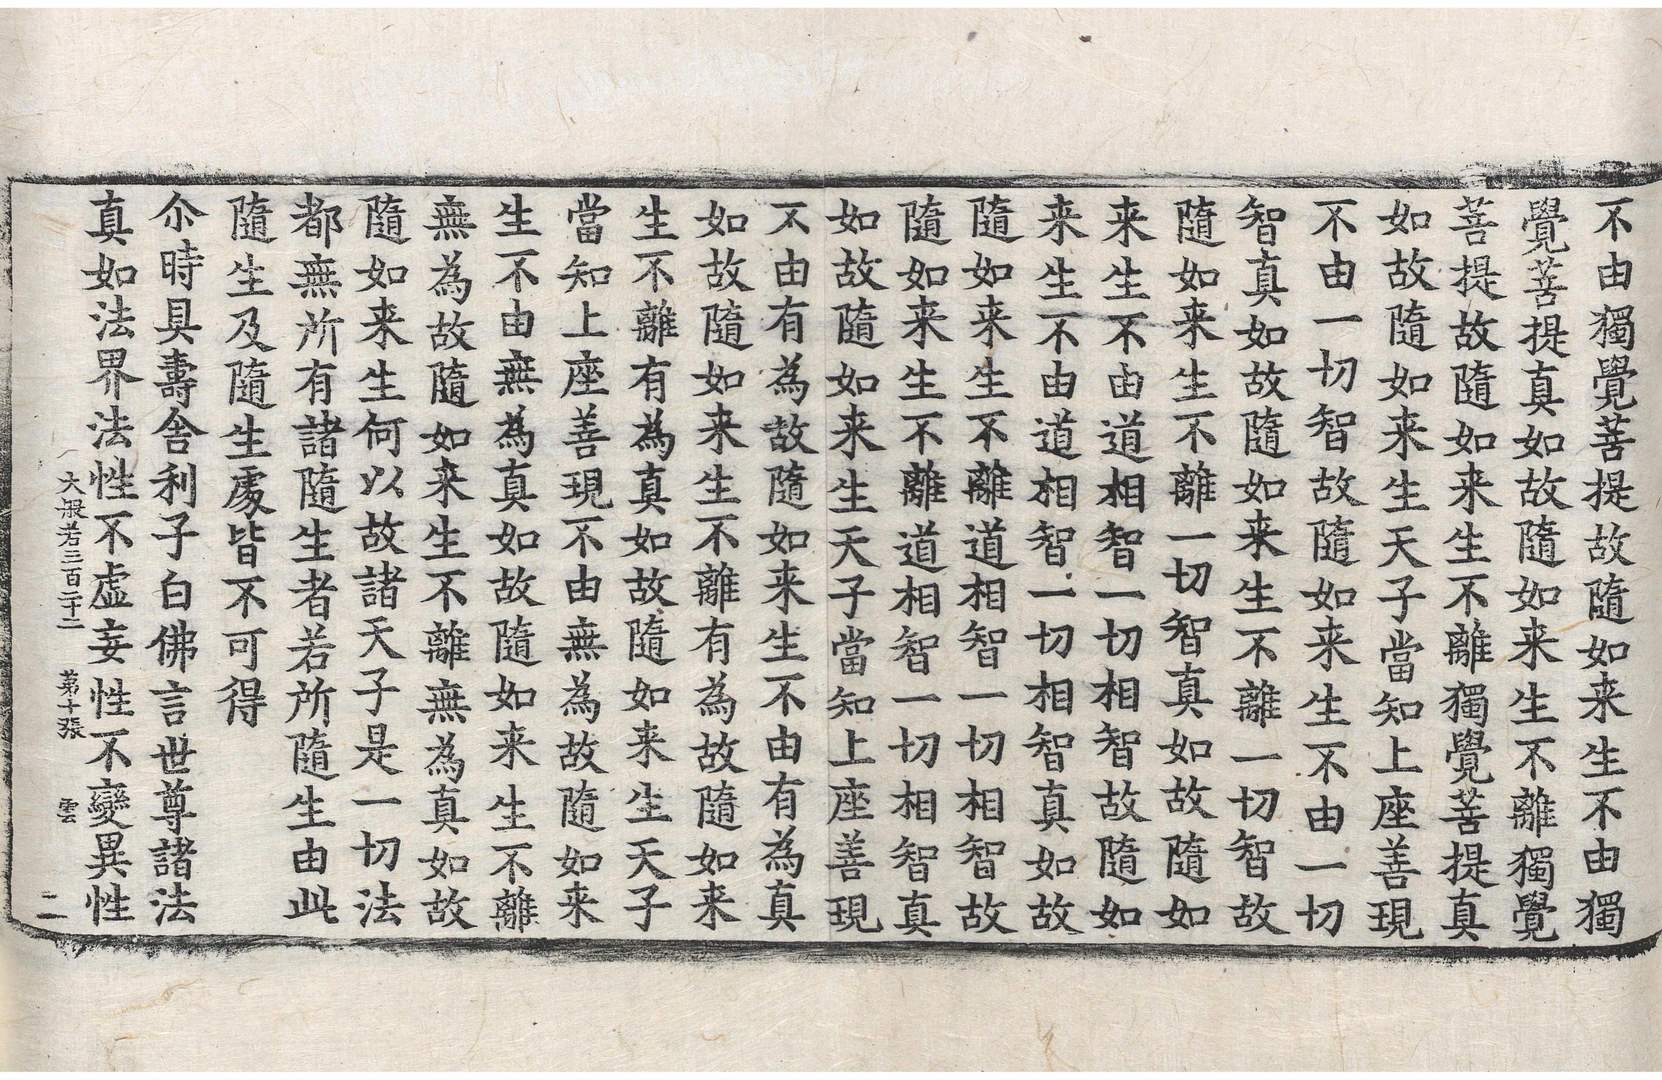 不由獨覺菩提故隨如来生不由獨
覺菩提真如故隨如来生不離獨覺
菩提故隨如来生不離獨覺菩提真
如故隨如来生天子當知上座善現
不由一切智故隨如来生不由一切
智真如故隨如来生不離一切智故
隨如来生不離一切智真如故隨如
来生不由道相智一切相智故隨如
来生不由道相智一切相智真如故
隨如来生不離道相智一切相智故
隨如来生不離道相智一切相智真
如故隨如来生天子當知上座善現
不由有為故隨如来生不由有為真
如故隨如来生不離有為故隨如来
生不離有為真如故隨如来生天子
當知上座善現不由無為故隨如来
生不由無為真如故隨如来生不離
無為故隨如来生不離無為真如故
隨如来生何以故諸天子是一切法
都無所有諸隨生者若所隨生由此
隨生及隨生處皆不可得
尒時具壽舍利子白佛言世尊諸法
真如法界法性不虛妄性不變異性
大般若三百二十二 第十張 雲
二